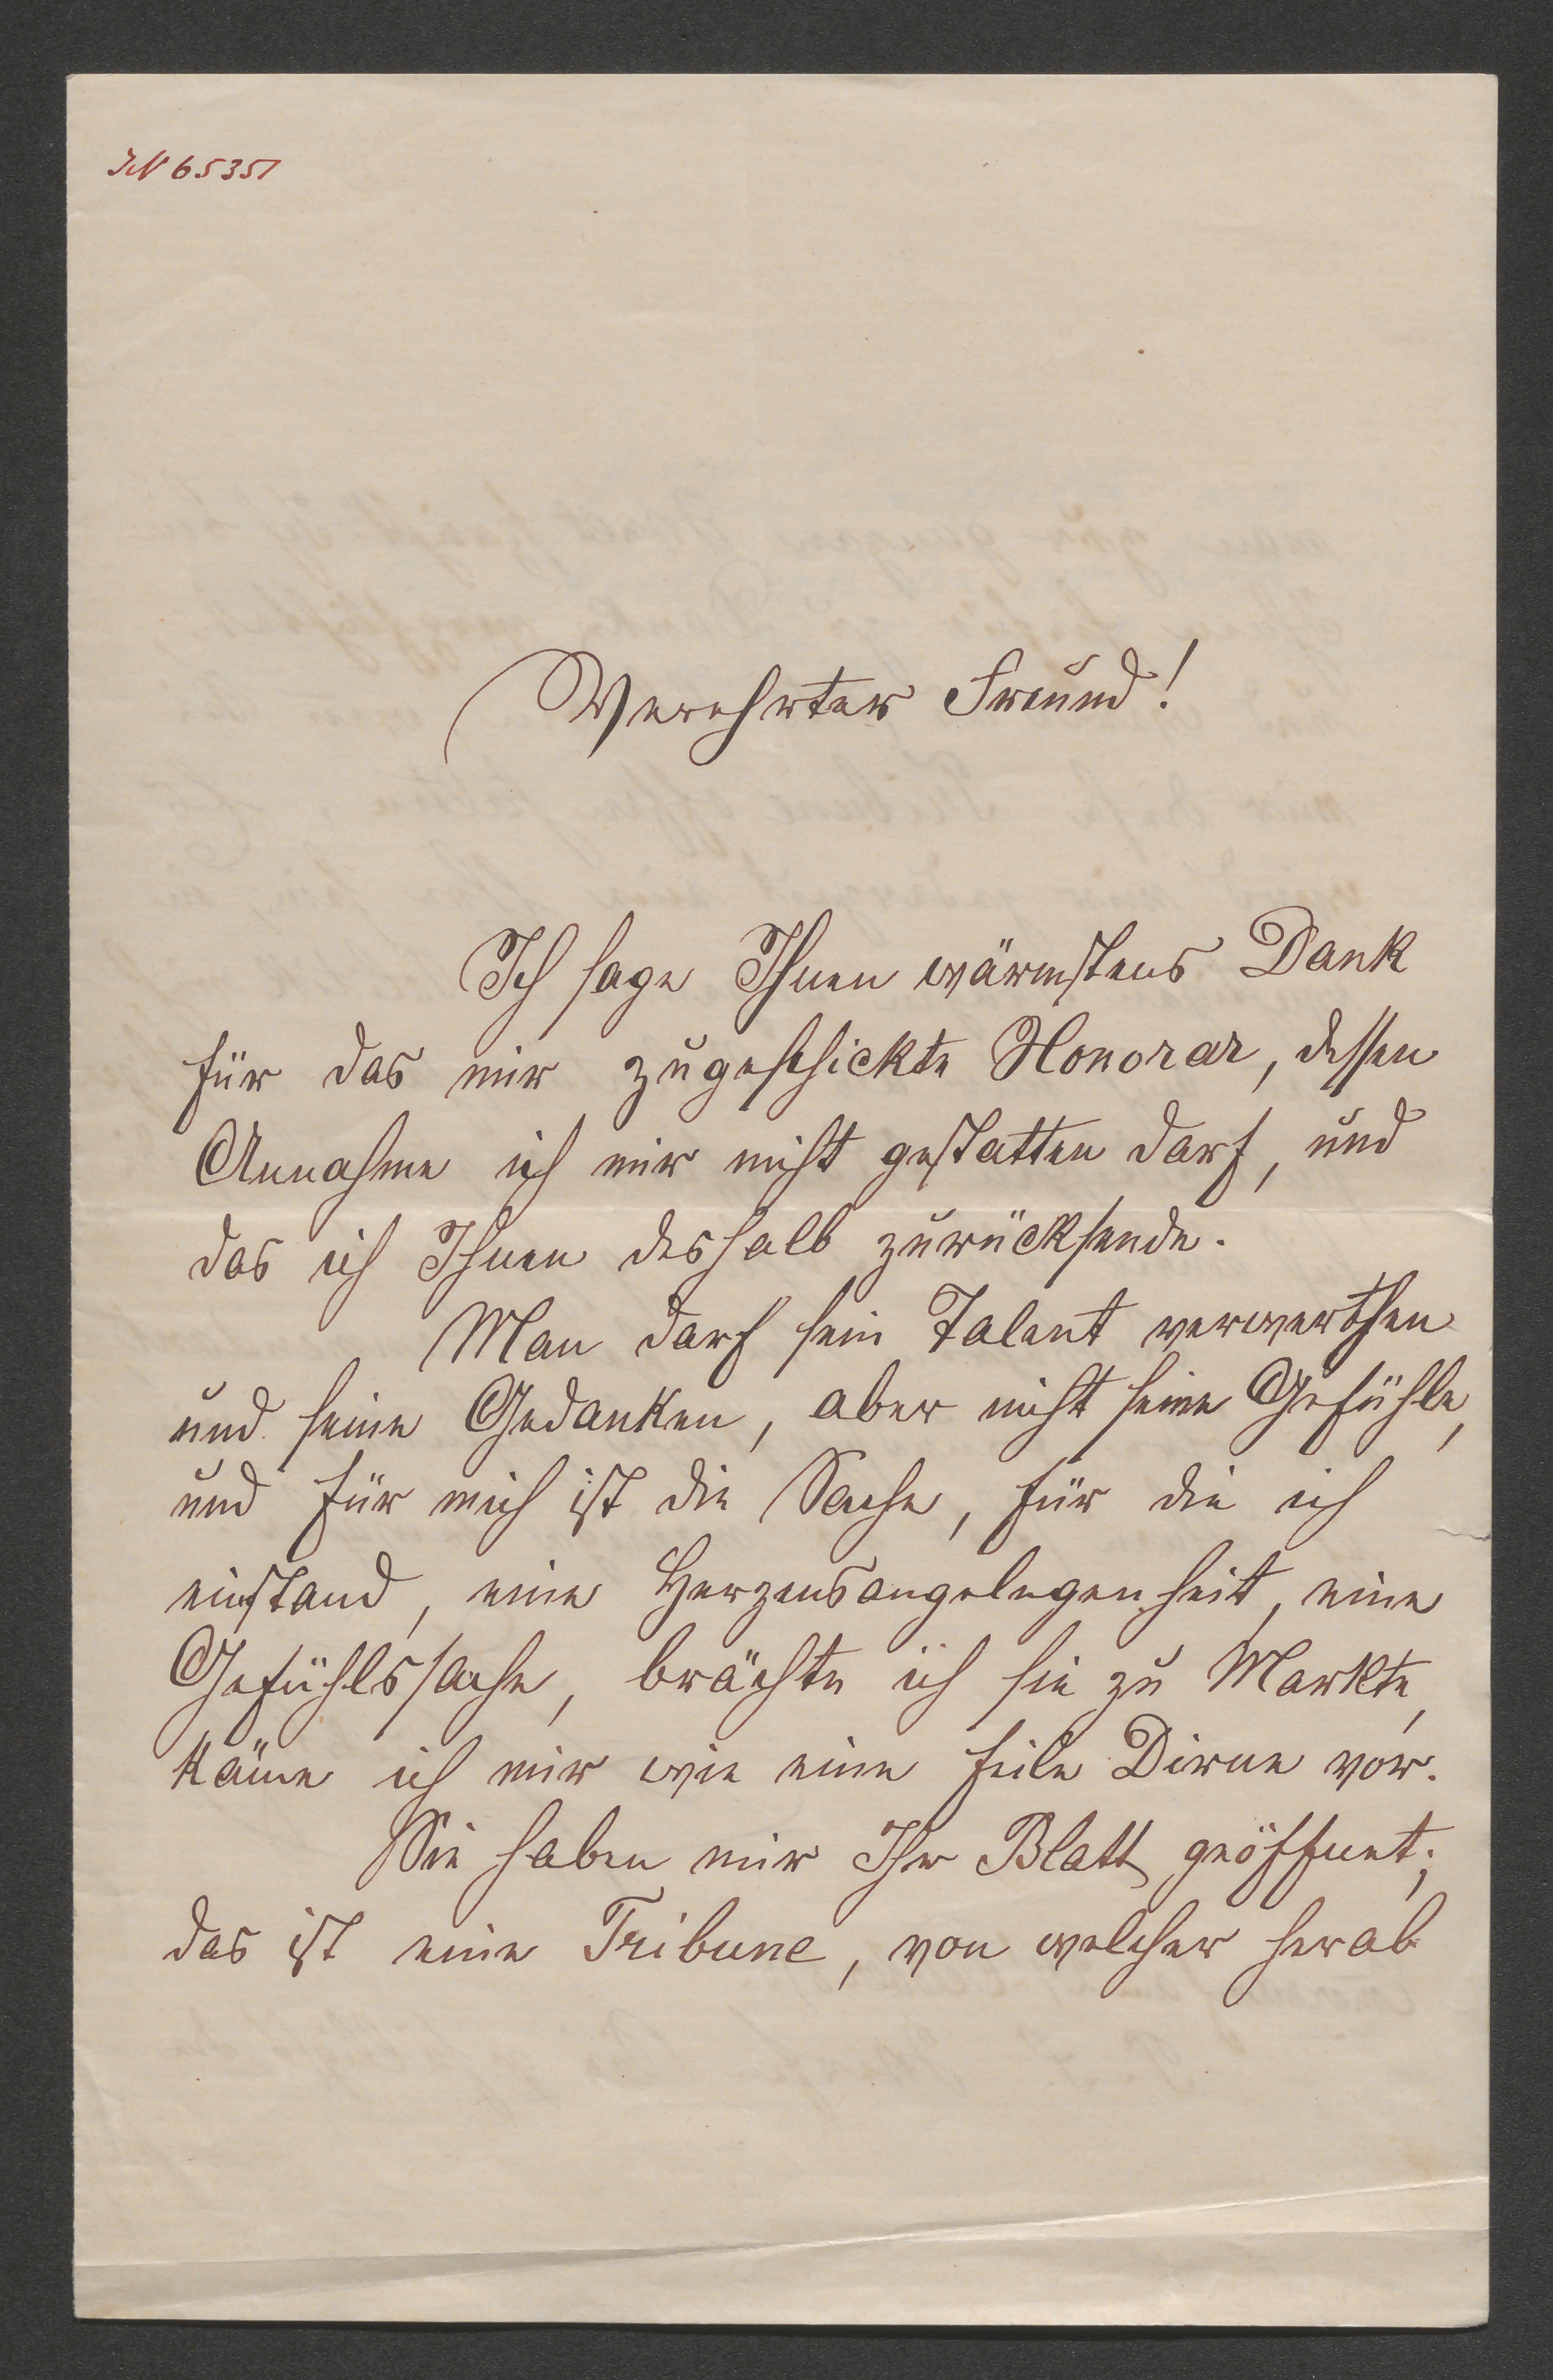 IN 65351
Verehrter Freund!
Ich sage Ihnen wärmstens Dank
für das mir zugeschickte Honorar, dessen
Annahme ich mir nicht gestatten darf, und
das ich Ihnen deshalb zurücksende.
Man darf sein Talent verwerthen
und seine Gedanken, aber nicht seine Gefühle,
und für mich ist die Sache, für die ich
einstand, eine Herzensangelegenheit, eine
Gefühlssache, brächte ich sie zu Markte,
käme ich mir wie eine feile Dirne vor.
Sie haben mir Ihr Blatt geöffnet;
das ist eine Tribune, von welcher herab